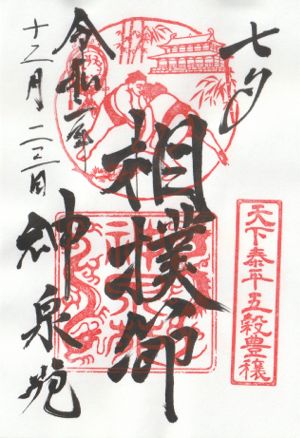 七夕
天下泰平五穀豊穣
相撲節
神泉苑
令和二年
十二月